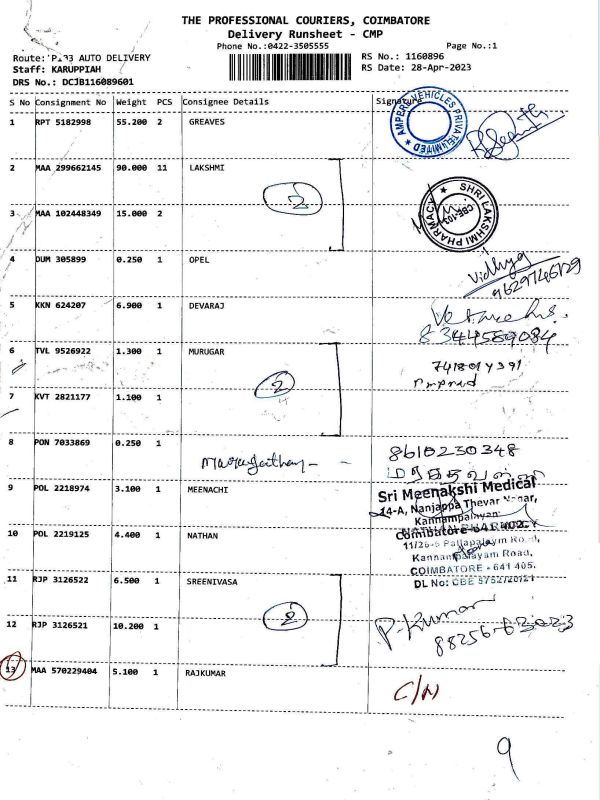 THE PROFESSIONAL COURIERS, COIMBATORE
Delivery Runsheet - CMP
Phone No.:0422-3505555 Page No.:1
Route: AUTO DELIVERY RS No.: 1160896
Staff: KARUPPIAH RS Date: 28-Apr-2023
DRS No.: DCJB116089601
S No Consignment No Weight PCS Consignee Details Signature
1 RPT 5182998 55.200 2 GREAVES
AMPERE VEHICLES PRIVATE LIMITED
2 MAA 299662145 90.000 11 LAKSHMI
2
SHRI LAKSHMI PHARMACY
CBE-103
3 MAA 102448349 15.000 2
4 DUM 305899 0.250 1 OPEL
Vidhya
9629746729
5 KKN 624207 6.900 1 DEVARAJ
8344589084
6 TVL 9526922 1.300 1 MURUGAR
2
7 KVT 2821177 1.100 1
8 PON 7033869 0.250 1
8610230348
9 POL 2218974 3.100 1 MEENACHI
Sri Meenakshi Medical
14-A, Nanjappa Thevar Nagar,
Kannampalayam
Coimbatore-641 402.
10 POL 2219125 4.400 1 NATHAN
Kannampalayam Road,
COIMBATORE - 641 405.
DL No: CBE
11 RJP 3126522 6.500 1 SREENIVASA
2
12 RJP 3126521 10.200 1
P. Kumar
88256-63023
13 MAA 570229404 5.100 1 RAJKUMAR
C/N
9